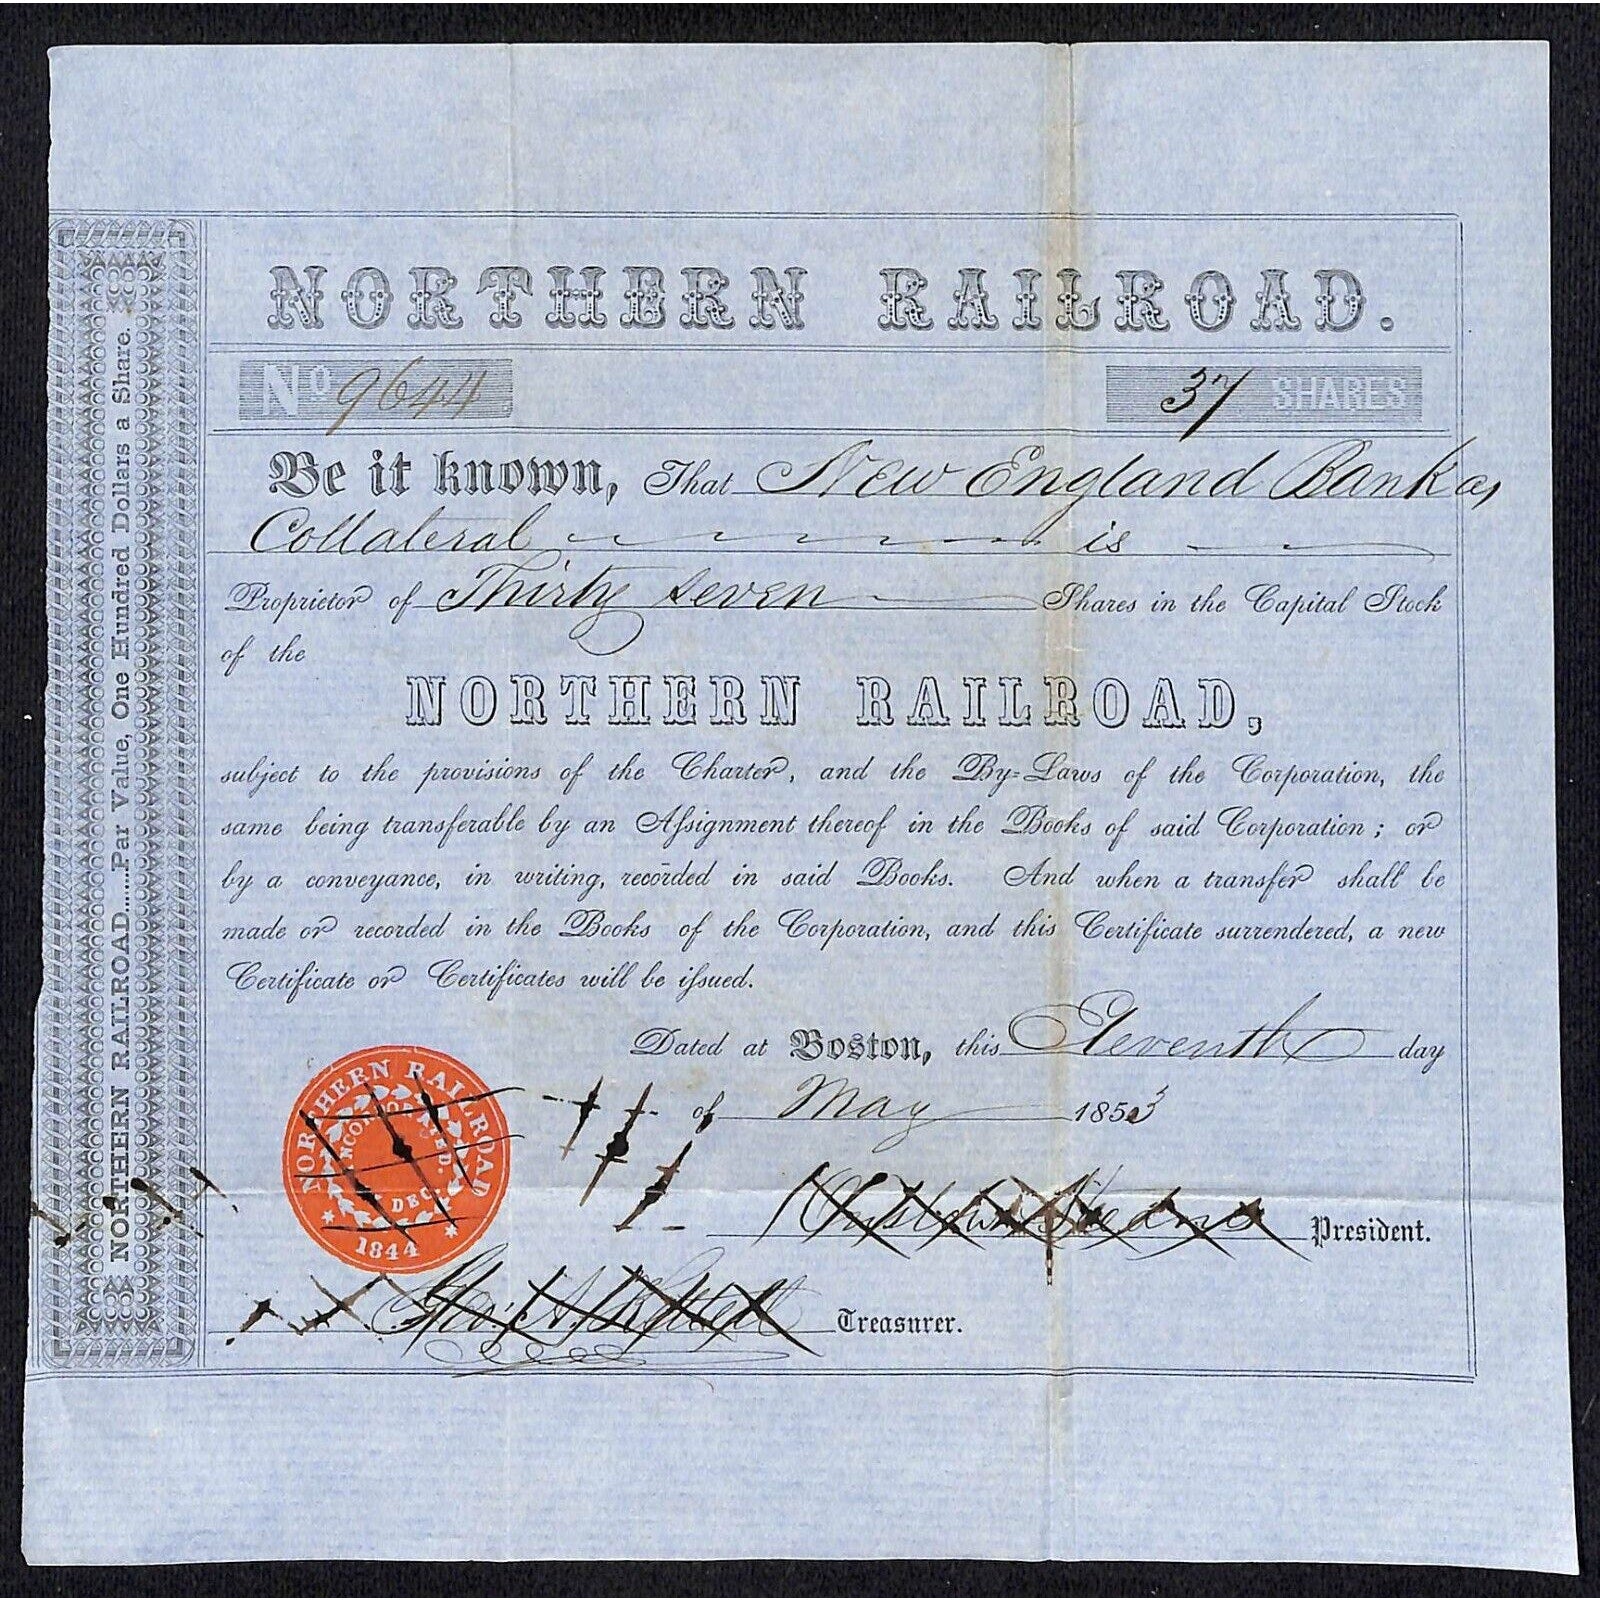 NORTHERN RAILROAD.
No 9644
37 SHARES
Be it known, That New England Bank as
Collateral is
Proprietor of Thirty seven Shares in the Capital Stock
of the
NORTHERN RAILROAD,
subject to the provisions of the Charter, and the By=Laws of the Corporation, the
same being transferable by an Aſsignment thereof in the Books of said Corporation; or
by a conveyance, in writing, recorded in said Books. And when a transfer shall be
made or recorded in the Books of the Corporation, and this Certificate surrendered, a new
Certificate or Certificates will be iſsued.
Dated at Boston, this Eleventh day
of May 1853
President.
Geo: A. Treasurer.
NORTHERN RAILROAD
INCORPORATED.
DEC.
1844
NORTHERN RAILROAD......Par Value, One Hundred Dollars a Share.